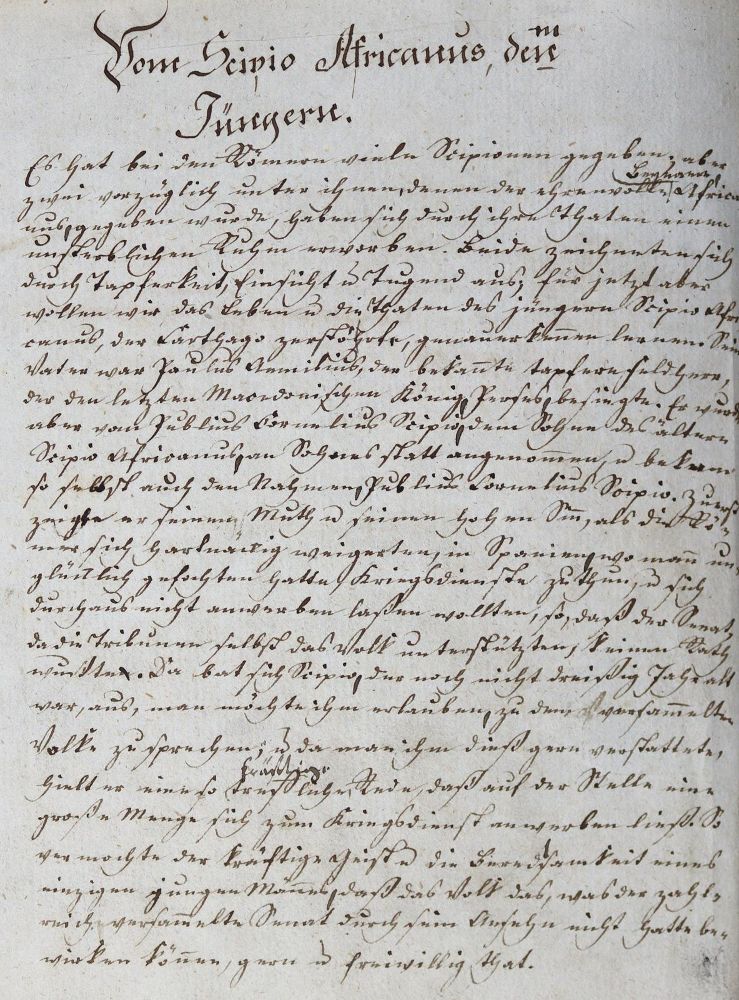 Vom Scipio Africanus, dem
Jüngern.
Es hat bei den Römern viele Scipionen gegeben; aber
zwei vorzüglich unter ihnen, denen der ehrenvolle Beyname Africa
nus, gegeben wurde, haben sich durch ihre Thaten einen
unsterblichen Ruhm erworben. Beide zeichneten sich
durch Tapferkeit, Einsicht u Tugend aus; für jetzt aber
wollen wir das Leben u die Thaten des jüngern Scipio Afri
canus, der Carthago zerstöhrte, genauer kennen lernen. Sein
Vater war Paulus Aemilius, der bekannte tapfere Feldherr,
der den letzten Macedonischen König, Perses, besiegte. Er wurde
aber vom Publius Cornelius Scipio, dem Sohne des ältern
Scipio Africanus, an Sohnes statt angenommen, u bekam
so selbst auch den Nahmen, Publius Cornelius Scipio. Zuerst
zeigte er seinen Muth u seinen hohen Sinn, als die Rö-
mer sich hartnäckig weigerten, in Spanien, wo mann un-
glücklich gefochten hatte, Kriegsdienste zu thun, u sich
durchaus nicht anwerben laßen wollten, so, daß der Senat,
da die Tribunen selbst das Volk unterstützten, keinen Rath
wußte. Da bat sich Scipio, der noch nicht dreißig Jahr alt
war, aus, man möchte ihm erlauben, zu dem versammelten
Volke zu sprechen; u da man ihm dieß gern verstattete,
hielt er eine so treffliche kräftige Rede, daß auf der Stelle eine
große Menge sich zum Kriegsdienst anwerben ließ. So
vermochte der kräftige Geist u die Beredsamkeit eines
einzigen jungen Mannes, daß das Volk das, was der zahl-
reich versammelte Senat durch sein Ansehn nicht hatte be-
wirken können, gern u freiwillig that.